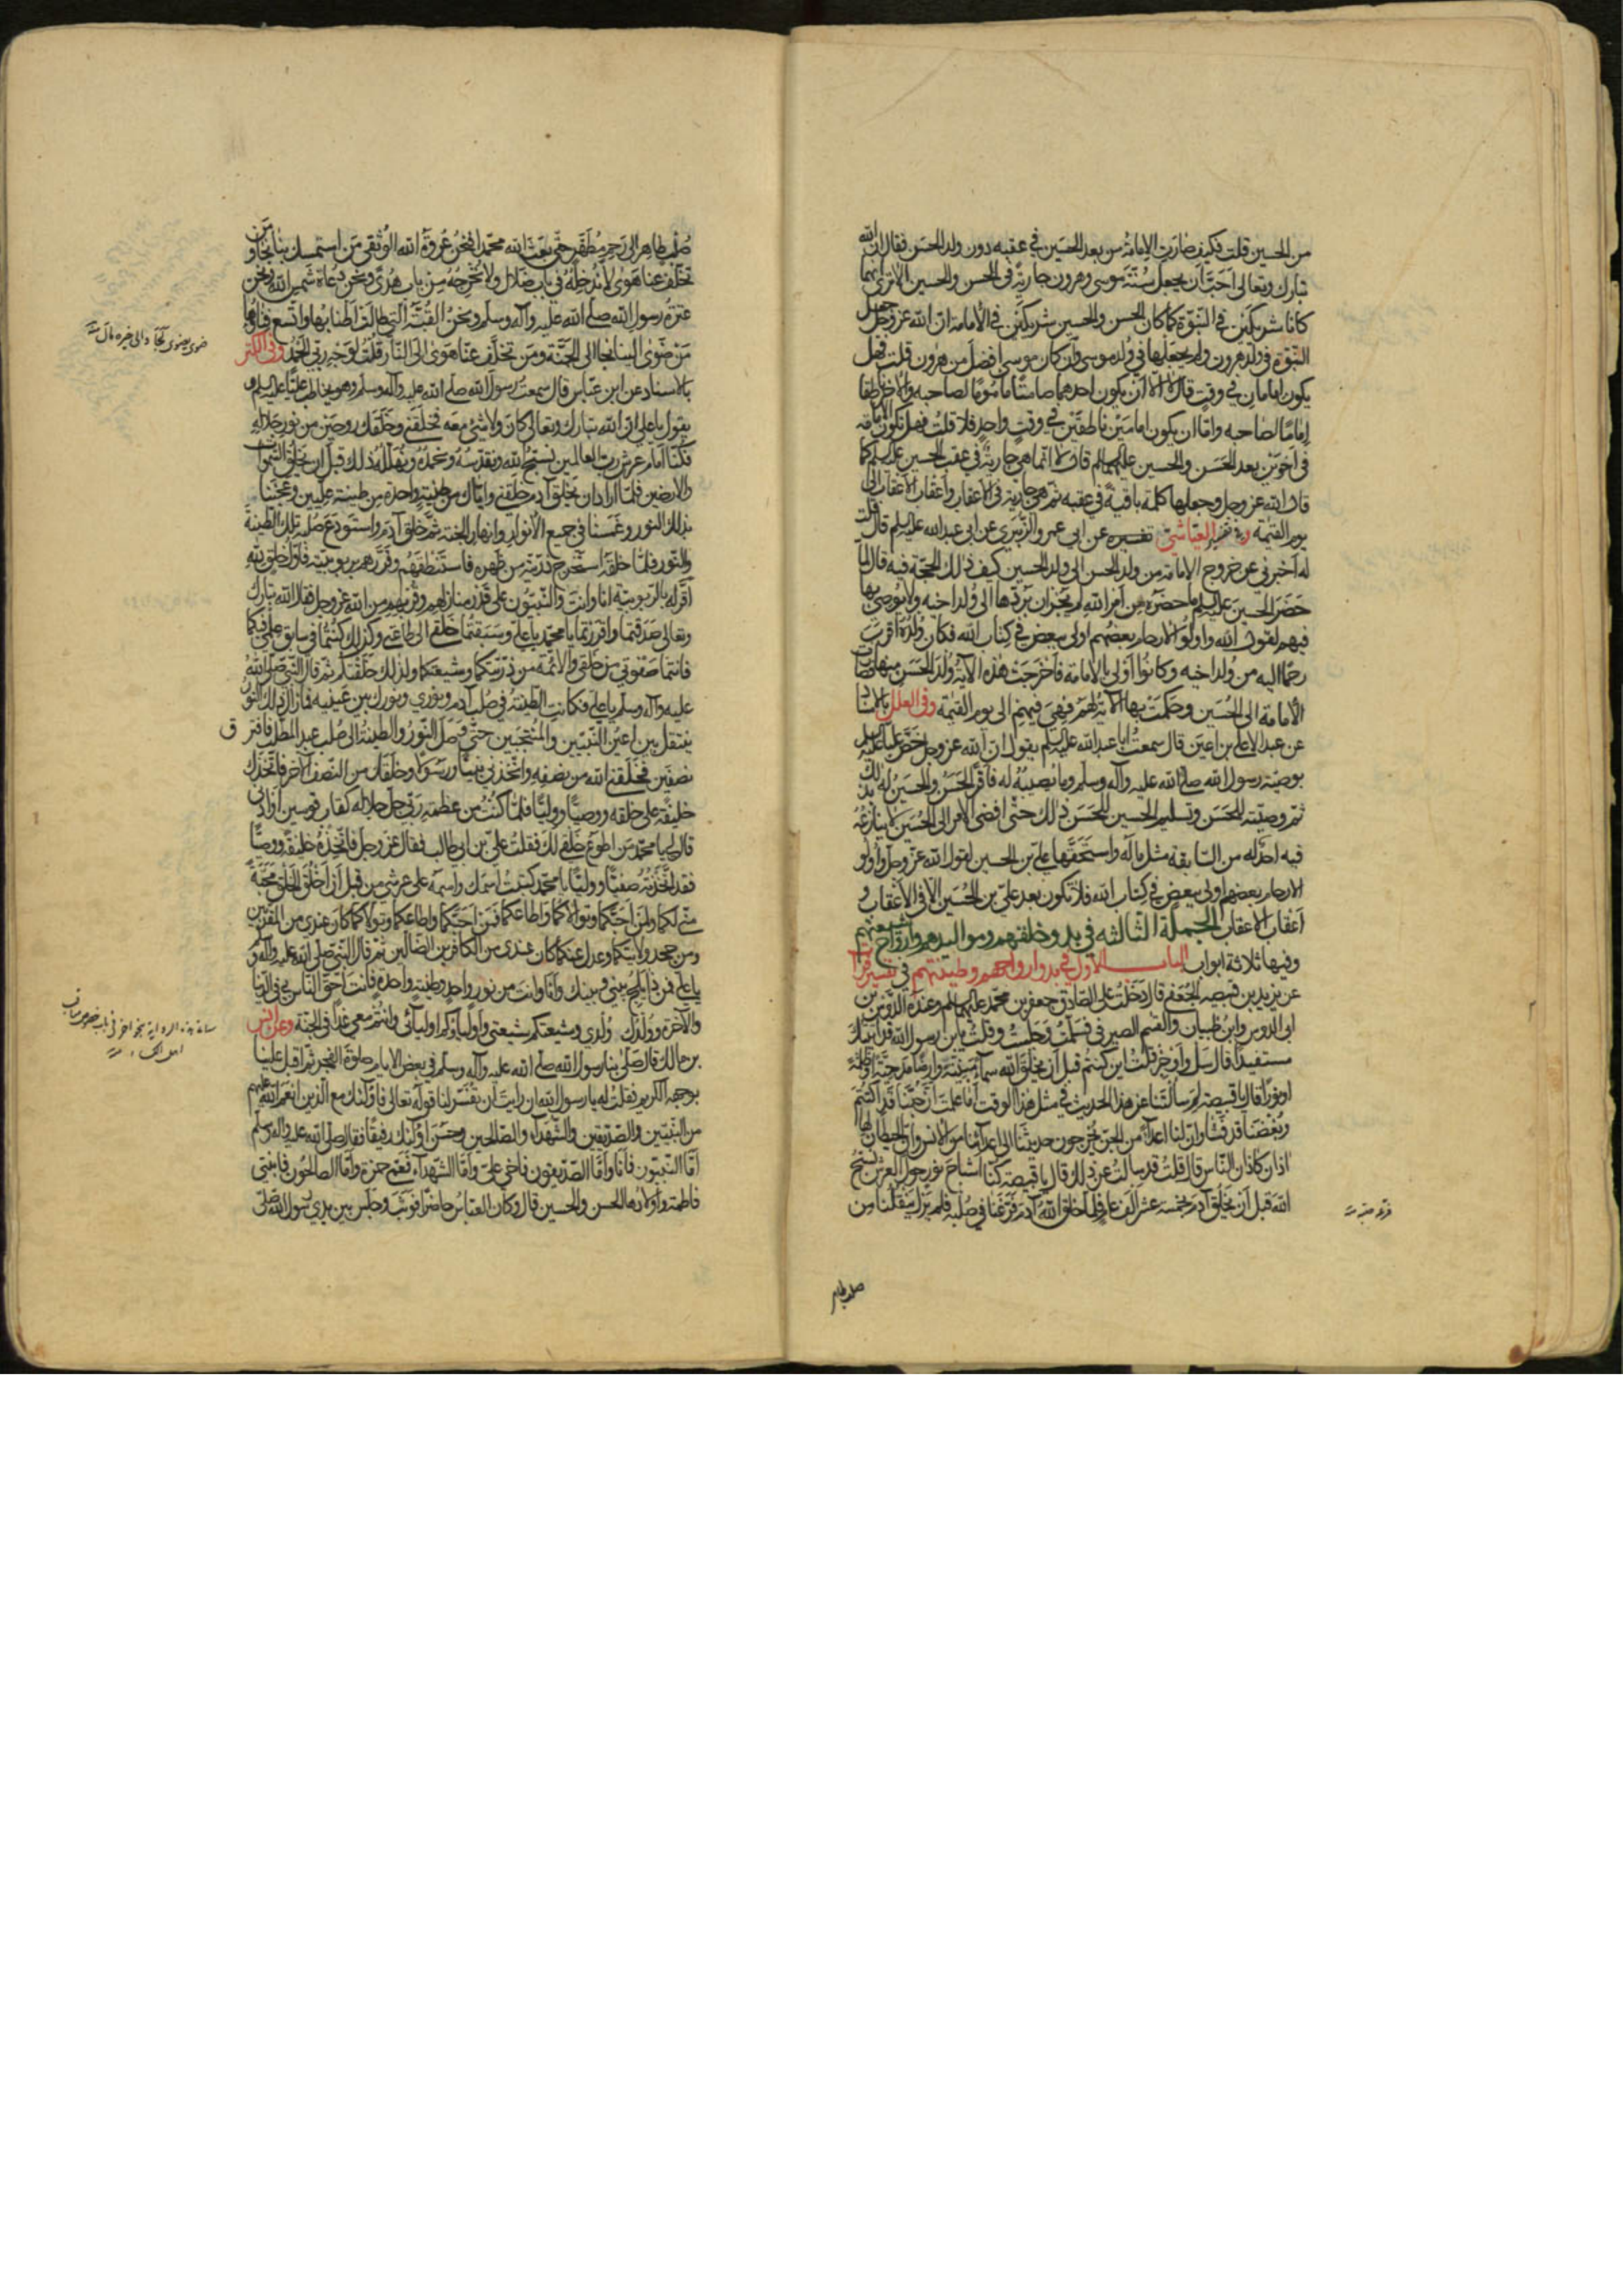 من الحسين قلت فكيف صارت الإمامة من بعد الحسين في عقبه دون ولد الحسن فقال ان الله
تبارك وتعالى احبّ ان يجعل سنّة موسى وهرون جارية في الحسن والحسين الا ترى انهما
كانا شريكين في النبوّة كما كان الحسن والحسين شريكين في الامامة ان الله عز وجل جعل
النبوّة في ولد هرون ولم يجعلها في ولد موسى وان كان موسى افضل من هرون قلت فهل
يكون امامان في وقت قال لا الا ان يكون احدهما صامتا مأموما لصاحبه والاخر ناطقا
إماما لصاحبه واما ان يكون امامين ناطقين في وقت واحد فلا قلت فهل تكون الامامة
في اخوين بعد الحسن والحسين عليهما السلم قال لا انما هي جارية في عقب الحسين عليه السلم كما
قال الله عز وجل وجعلها كلمة باقية في عقبه ثم هي جارية في الاعقاب واعقاب الاعقاب الى
يوم القيمة وفي تفسير العياشي تفسيره عن ابي عمرو الزبيري عن ابي عبد الله عليه السلم قال قلت
له اخبرني عن خروج الامامة من ولد الحسن الى ولد الحسين كيف ذلك الحجة فيه قال لما
حضر الحسين عليه السلم ما حضره من امر الله لم يجز ان يردّها الى ولد اخيه ولا يوصي بها
فيهم لقول الله واولوا الارحام بعضهم اولى ببعض في كتاب الله فكان ولده اقرب
رحما اليه من ولد اخيه وكانوا اولى بالإمامة فاخرجت هذه الآية ولد الحسن منها فصارت
الأمامة الى الحسين وحكمت بها الآية لهم فهي فيهم الى يوم القيمة وفي العلل بالاسناد
عن عبد الاعلى بن اعين قال سمعت ابا عبد الله عليه السلم يقول ان الله عز وجل خصّ عليا عليه السلم
بوصية رسول الله صلى الله عليه وآله وسلم وما يصيبه له فاقر الحسن والحسين له بذلك
ثم وصيته للحسن وتسليم الحسين للحسن ذلك حتى افضى الامر الى الحسين لا ينازعه
فيه احد له من السابقة مثل ماله واستحقها علي بن الحسين لقول الله عز وجل واولوا
الارحام بعضهم اولى ببعض في كتاب الله فلا تكون بعد علي بن الحسين الا في الاعقاب و
اعقاب الاعقاب الجملة الثالثة في بدو خلقهم ومواليدهم وارواح شيعتهم
وفيها ثلاثة ابواب الباب الاول في بدو ارواحهم وطينتهم في تفسير فرات
عن يزيد بن قبيصة الجعفي قال دخلت على الصادق جعفر بن محمد عليهما السلم وعنده
ابن ظبيان والقسم الصيرفي فسلمت وجلست وقلت يابن رسول الله قد اتيتك
مستفيدا قال سل واوجز قلت اين كنتم قبل ان يخلق الله سماء مبنية وارضا مدحية او ظلمة
او نورا قال يا قبيصة لم سألتنا عن هذا الحديث في مثل هذا الوقت اما علمت ان حبّنا قد اكتتم
وبغضنا قد فشا وان لنا اعداء من الجن يخرجون حديثنا الى اعدائنا من الانس وان الحيطان لها
اذان كآذان الناس قال قلت قد سالت عن ذلك قال يا قبيصة كنّا اشباح نور حول العرش نسبّح
الله قبل ان يخلق آدم بخمسة عشر الف عام فلما خلق الله آدم فرّغنا في صلبه فلم يزل ينقلنا من
صلب طاهر
صلب طاهر الى رحم مطهّر حتى بعث الله محمدا فنحن عروة الله الوثقى من استمسك بنا نجا ومن
تخلف عنا هوى لا ندخله في باب ضلال ولا نخرجه من باب هدى ونحن رعاة شمس الله ونحن
عترة رسول الله صلى الله عليه وآله وسلم ونحن القبة التي طالت اطنابها واتسع فناؤها
من ضوى الينا نجا الى الجنة ومن تخلف عنا هوى الى النار قلت لوجه ربي الحمد وفي الكنز
بالاسناد عن ابن عباس قال سمعت رسول الله صلى الله عليه وآله وسلم وهو يخاطب عليا عليه السلم
يقول يا علي ان الله تبارك وتعالى كان ولا شيء معه فخلقني وخلقك روحين من نور جلاله
فكنّا امام عرش رب العالمين نسبّح الله ونقدّسه ونحمده ونهلّله ذلك قبل ان يخلق السموات
والارضين فلما اراد ان يخلق آدم خلقني واياك من طينة واحدة من طينة عليين وعجننا
بذلك النور وغمسنا في جميع الانوار وانهار الجنة ثم خلق آدم واستودع صلبه تلك الطينة
والنور فلما خلقه استخرج ذريته من ظهره فاستنطقهم وقرّرهم بربوبيته فاول خلق الله
اقرّ له بالربوبية انا وانت والنبيون على قدر منازلهم وقربهم من الله عز وجل فقال الله تبارك
وتعالى صدقتما واقررتما يا محمد يا علي وسبقتما خلقي الى طاعتي وكذلك كنتما في سابق علمي فيكما
فانتما صفوتي من خلقي والائمة من ذريتكما وشيعتكما ولذلك خلقتكم ثم قال النبي صلى الله
عليه وآله وسلم يا علي فكانت الطينة في صلب آدم ونوري ونورك بين عينيه فما زال ذلك النور
ينتقل بين اعين النبيين والمنتجبين حتى وصل النور والطينة الى صلب عبد المطلب فافترق
نصفين فخلقني الله من نصفه واتخذني نبيا ورسولا وخلقك من النصف الآخر فاتخذك
خليفة على خلقه ووصيا ووليا فلما كنت من عظمة ربي جل جلاله كقاب قوسين او ادنى
قال لي يا محمد من اطوع خلقي لك فقلت علي بن ابي طالب فقال عز وجل فاتخذه خليفة ووصيا
فقد اتخذته صفيا ووليا يا محمد كتبت اسمك واسمه على عرشي من قبل ان اخلق الخلق محبة
مني لكما ولمن احبكما وتولاكما واطاعكما فمن احبكما واطاعكما وتولاكما كان عندي من المقربين
ومن جحد ولايتكما وعدل عنكما كان عندي من الكافرين الضالين ثم قال النبي صلى الله عليه وآله و
يا علي فمن ذا يلج بيني وبينك وانا وانت من نور واحد وطينة واحدة فانت احق الناس بي في الدنيا
والآخرة وولدك ولدي وشيعتكم شيعتي واولياؤكم اوليائي وانتم معي غدا في الجنة وعن انس
بن مالك قال صلّى بنا رسول الله صلى الله عليه وآله وسلم في بعض الايام صلوة الفجر ثم اقبل علينا
بوجهه الكريم فقلت له يا رسول الله ان رايت ان تفسّر لنا قوله تعالى فاولئك مع الذين انعم الله عليهم
من النبيين والصديقين والشهداء والصالحين وحسن اولئك رفيقا فقال صلى الله عليه واله وسلم
امّا النبيّون فانا وامّا الصديقون فاخي علي وامّا الشهداء فعمّي حمزة وامّا الصالحون فابنتي
فاطمة واولادها الحسن والحسين قال وكان العباس حاضرا فوثب وجلس بين يدي رسول الله صلى